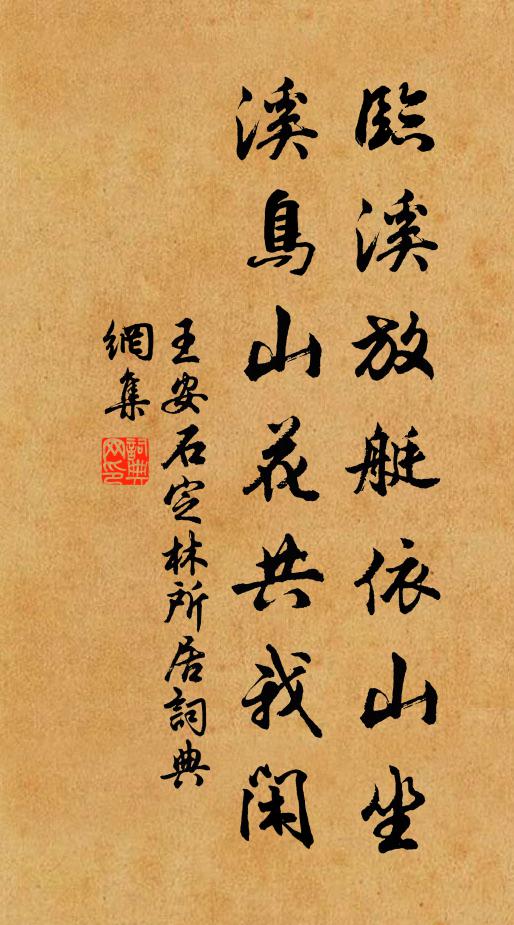 臨溪放艇依山坐
溪鳥山花共我閑
王安石定林所居詞典
網集
詞典
网印